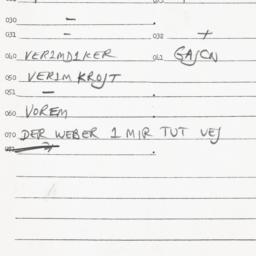 030 –
031 – 032 +
040 VERIMDIKER 041 GAJCN
050 VERIM KROJT
051 –
060 VOREM
070 DER WEBER 1 MIR TUT VEJ